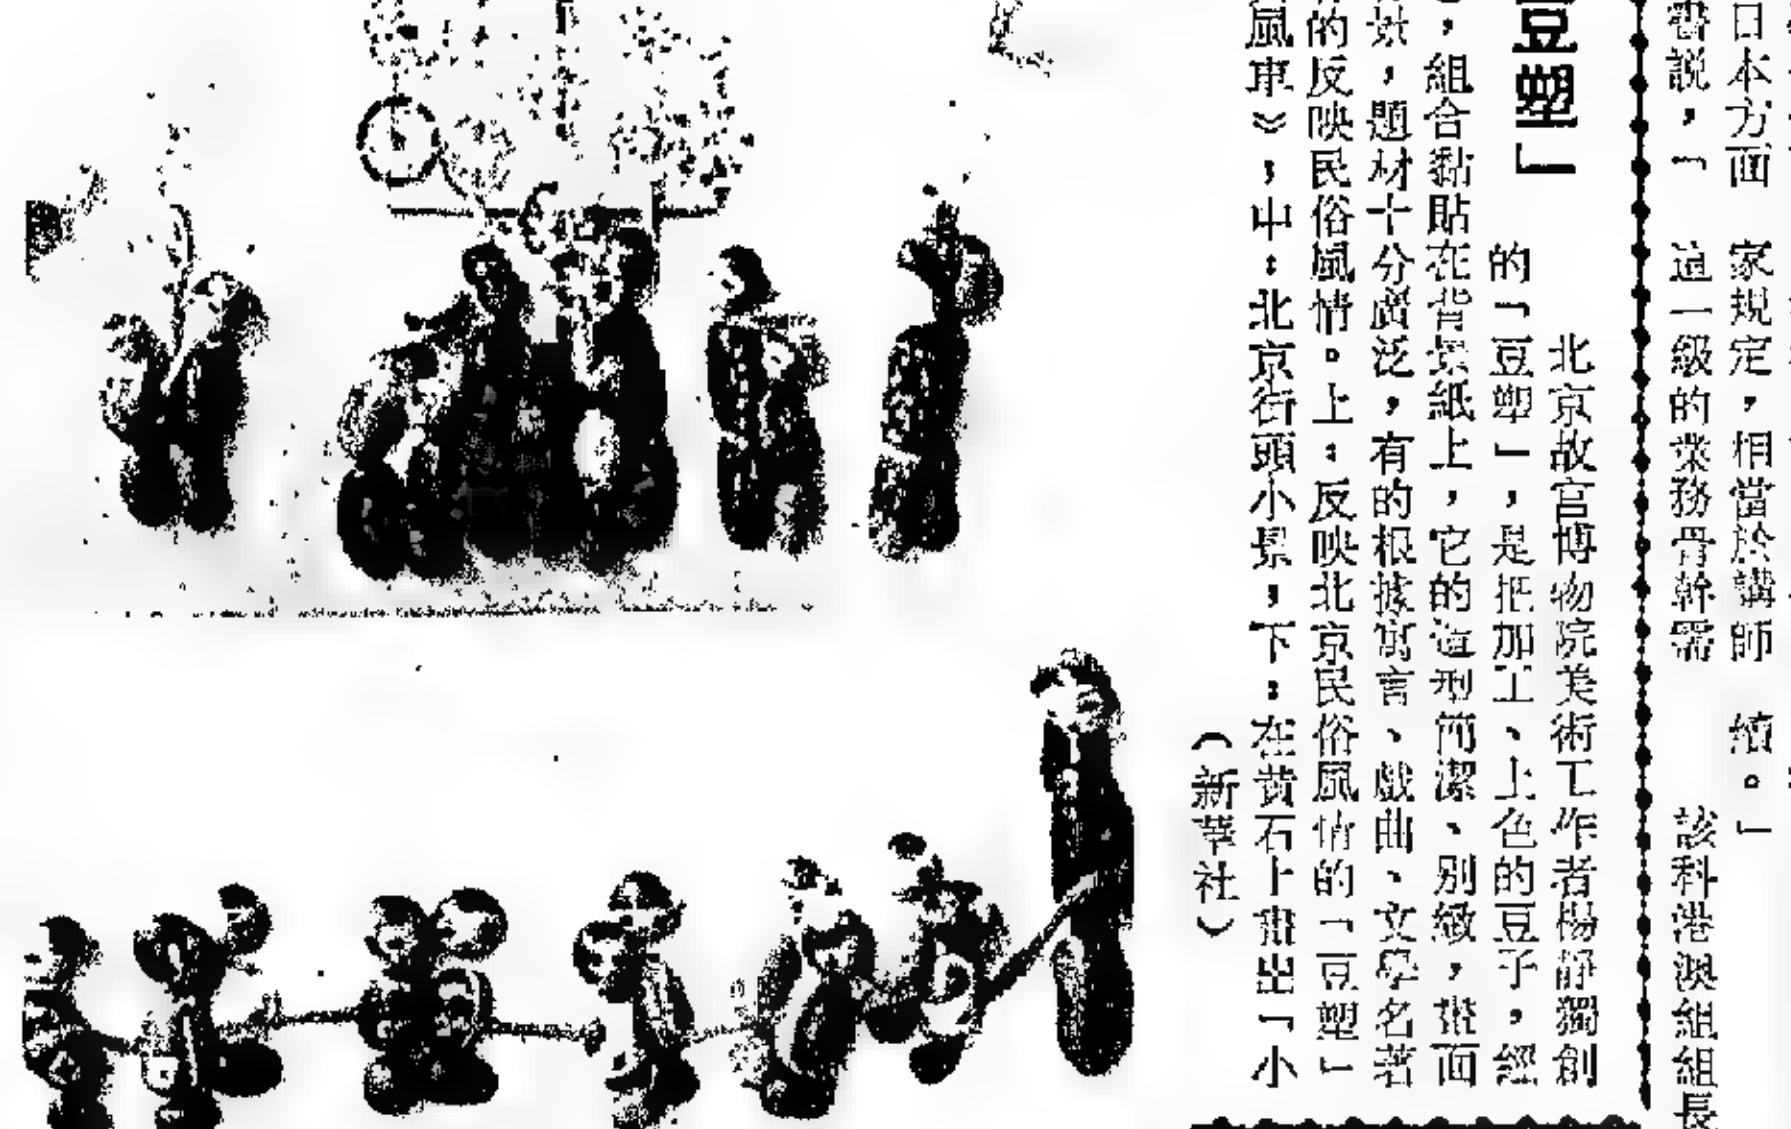 日本方面　家規定，相當於講師　續。」
書説，「　這一級的業務骨幹需　該科港澳組組長
豆塑」
北京故宮博物院美術工作者楊靜獨創
的「豆塑」，是把加工、上色的豆子，經
，組合黏貼在背景紙上，它的造型簡潔、別緻，畫面
景，題材十分廣泛，有的根據寓言、戲曲、文學名著
的反映民俗風情。上：反映北京民俗風情的「豆塑」
風車》，中：北京街頭小景，下：在黃石上畫出「小
（新華社）